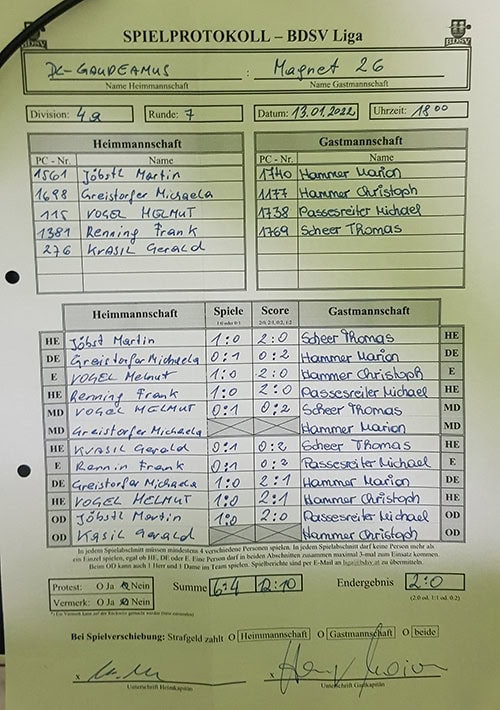 SPIELPROTOKOLL – BDSV Liga
BDSV BDSV
DC-GAUDEAMUS : Magnet 26
Name Heimmannschaft Name Gastmannschaft
Division: 4a Runde: 7 Datum: 13.01.2022 Uhrzeit: 18 00
Heimmannschaft Gastmannschaft
PC - Nr. Name PC - Nr. Name
1561 Jöbstl Martin 1740 Hammer Marion
1698 Greistorfer Michaela 1177 Hammer Christoph
115 VOGEL HELMUT 1738 Passesreiter Michael
1381 Renning Frank 1769 Scheer Thomas
276 KRASIL Gerald
Heimmannschaft Spiele Score Gastmannschaft
1:0 oder 0:1 2:0, 2:1, 0:2, 1:2
HE Jöbst Martin 1:0 2:0 Scheer Thomas HE
DE Greistorfer Michaela 0:1 0:2 Hammer Marion DE
E VOGEL Helmut 1:0 2:0 Hammer Christoph E
HE Renning Frank 1:0 2:0 Passesreiter Michael HE
MD VOGEL HELMUT 0:1 0:2 Scheer Thomas MD
MD Greistorfer Michaela Hammer Marion MD
HE KRASIL Gerald 0:1 0:2 Scheer Thomas HE
E Rennin Frank 0:1 0:2 Passesreiter Michael E
DE Greistorfer Michaela 1:0 2:1 Hammer Marion DE
HE VOGEL HELMUT 1:0 2:1 Hammer Christoph HE
OD Jöbstl Martin 1:0 2:0 Passesreiter Michael OD
OD Kasil Gerald Hammer Christoph OD
In jedem Spielabschnitt müssen mindestens 4 verschiedene Personen spielen. In jedem Spielabschnitt darf keine Person mehr als
ein Einzel spielen, egal ob HE, DE oder E. Eine Person darf in beiden Abschnitten zusammen maximal 3-mal zum Einsatz kommen.
Beim OD kann auch 1 Herr und 1 Dame im Team spielen. Spielberichte sind per E-Mail an zu übermitteln.
Protest: O Ja O Nein Summe 6:4 12:10 Endergebnis 2:0
Vermerk: O Ja O Nein (2:0 od. 1:1 od. 0:2)
Bei Spielverschiebung: Strafgeld zahlt O Heimmannschaft O Gastmannschaft O beide
x x
Unterschrift Heimkapitän Unterschrift Gastkapitän